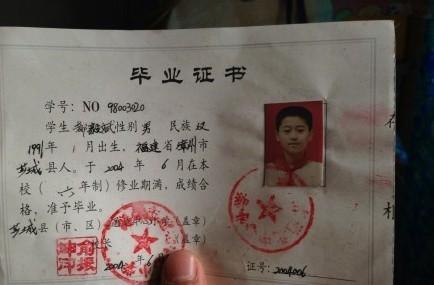 毕业证书
学号：NO 98003020
学生 郑毅斌性别 男 民族 汉
1991 年 1 月出生，福建省漳州市
芗城县人。于 2004 年 6 月在本
校（六年制）修业期满，成绩合
格，准予毕业。
芗城县（市、区）（盖章）
校长（盖章）
2004 年 6 月
证号：2004006